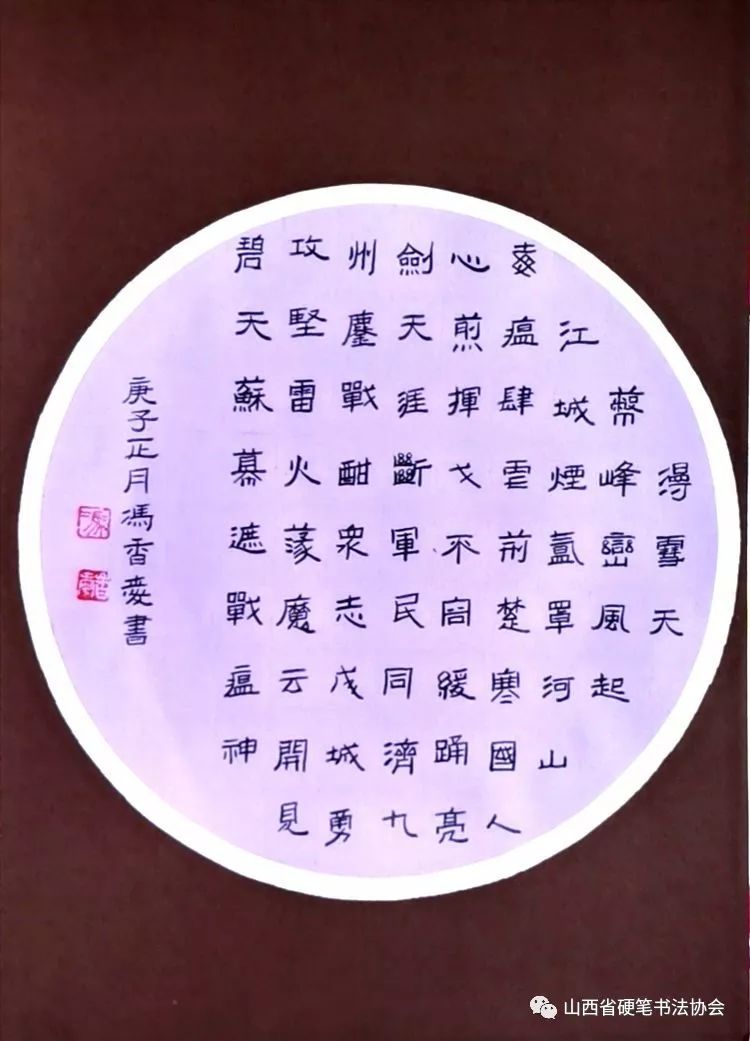 雪天
峰巒風起
江城煙氳罩河山
毒瘟肆雩荊楚寒國人
心煎揮戈不容緩踊亮
劍天涯斷軍民同濟九
州鏖戰酣眾志成城勇
攻堅雷火魔云開見
碧天蘇慕遮戰瘟神
庚子正月馮香愛書
山西省硬笔书法协会